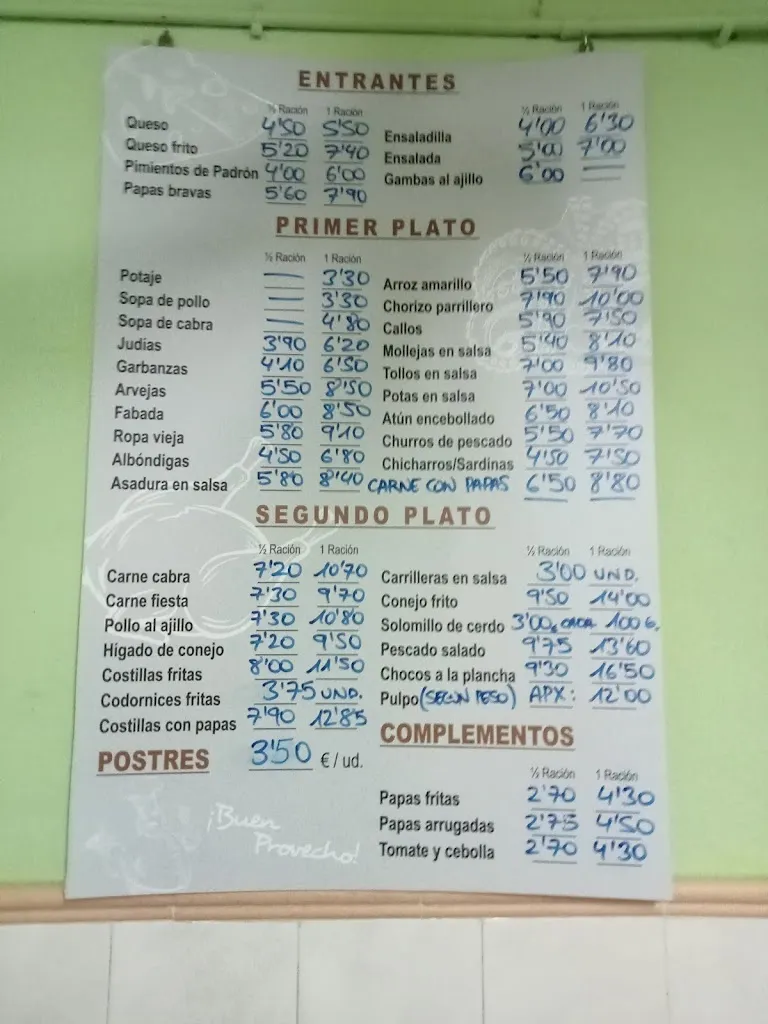 ENTRANTES
½ Ración 1 Ración
Queso 4'50 5'50
Queso frito 5'20 7'40
Pimientos de Padrón 4'00 6'00
Papas bravas 5'60 7'90
½ Ración 1 Ración
Ensaladilla 4'00 6'30
Ensalada 5'00 7'00
Gambas al ajillo 6'00 —
PRIMER PLATO
½ Ración 1 Ración
Potaje — 3'30
Sopa de pollo — 3'30
Sopa de cabra — 4'80
Judías 3'90 6'20
Garbanzas 4'10 6'50
Arvejas 5'50 8'50
Fabada 6'00 8'50
Ropa vieja 5'80 9'10
Albóndigas 4'50 6'80
Asadura en salsa 5'80 8'40
½ Ración 1 Ración
Arroz amarillo 5'50 7'90
Chorizo parrillero 7'90 10'00
Callos 5'90 7'50
Mollejas en salsa 5'40 8'10
Tollos en salsa 7'00 9'80
Potas en salsa 7'00 10'50
Atún encebollado 6'50 8'10
Churros de pescado 5'50 7'70
Chicharros/Sardinas 4'50 7'50
CARNE CON PAPAS 6'50 8'80
SEGUNDO PLATO
½ Ración 1 Ración
Carne cabra 7'20 10'70
Carne fiesta 7'30 9'70
Pollo al ajillo 7'30 10'80
Hígado de conejo 7'20 9'50
Costillas fritas 8'00 11'50
Codornices fritas 3'75 UND.
Costillas con papas 7'90 12'85
½ Ración 1 Ración
Carrilleras en salsa 3'00 UND.
Conejo frito 9'50 14'00
Solomillo de cerdo 3'00€ CADA 100 G.
Pescado salado 9'75 13'60
Chocos a la plancha 9'30 16'50
Pulpo (SEGUN PESO) APX: 12'00
POSTRES 3'50 € / ud.
COMPLEMENTOS
½ Ración 1 Ración
Papas fritas 2'70 4'30
Papas arrugadas 2'75 4'50
Tomate y cebolla 2'70 4'30
¡Buen
Provecho!